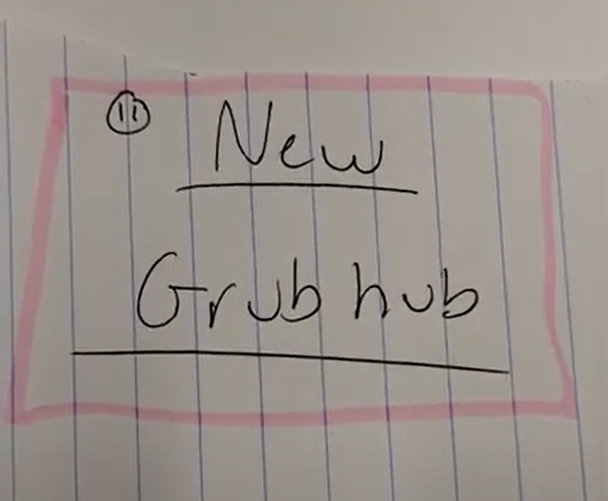 11 New
Grub hub